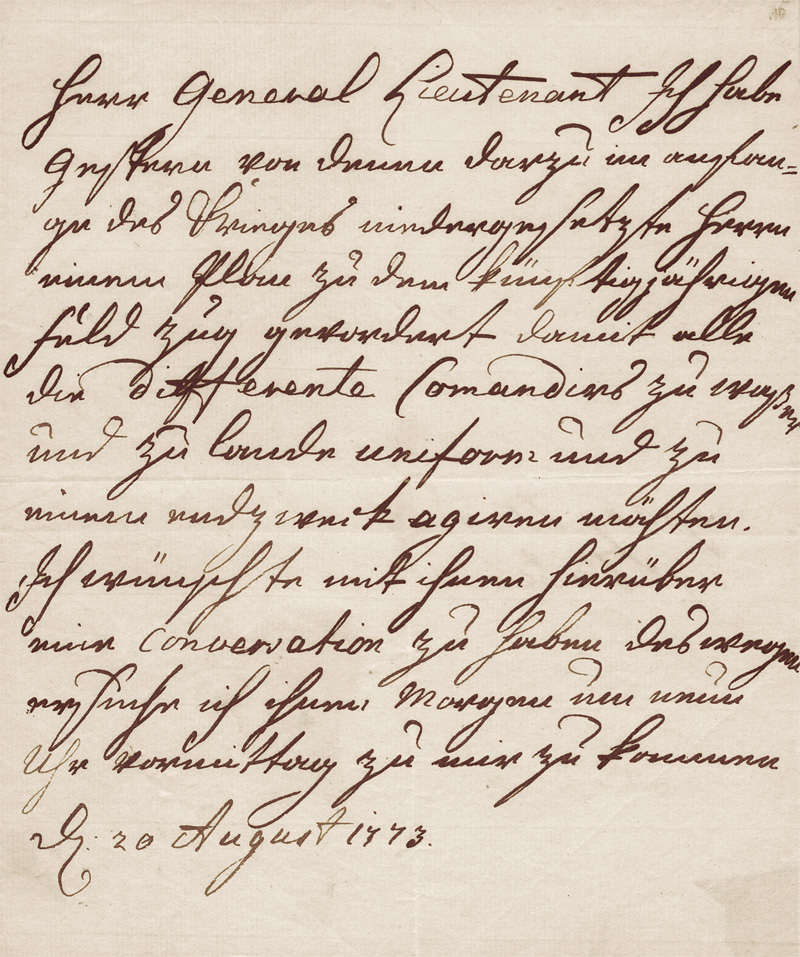 Herr General Lieutenant Ich habe
gestern von denen darzu im anfan=
ge des Krieges niedergesetzte Herrn
einem Plan zu dem künftigjährigen
Feld zug gevordert damit alle
die differente Comandirs zu waßer
und zu lande uniform und zu
einem endzweck agiren möchten.
Ich wünschte mit ihnen hierüber
eine Conversation zu haben deswegen
ersuche ich ihnen Morgen um neun
Uhr vormittag zu mir zu kommen
d. 20 August 1773.